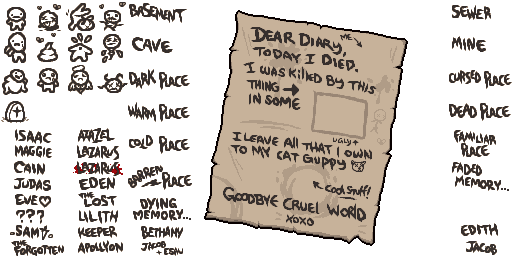 BASEMENT
CAVE
DARK PLACE
WARM PLACE
COLD PLACE
BARREN PLACE
DYING
MEMORY...
ISAAC
MAGGIE
CAIN
JUDAS
EVE♡
???
SAMS
THE
FORGOTTEN
AZAZEL
LAZARUS
LAZARUS
EDEN
THE
LOST
LILITH
KEEPER
APOLLYON
BETHANY
JACOB
+ ESAU
DEAR DIARY,
ME
TODAY I DIED.
I WAS KILLED BY THIS
THING →
IN SOME
UGLY
I LEAVE ALL THAT I OWN
TO MY CAT GUPPY
COOL STUFF!
GOODBYE CRUEL WORLD
XOXO
SEWER
MINE
CURSED PLACE
DEAD PLACE
FAMILIAR
PLACE
FADED
MEMORY...
EDITH
JACOB